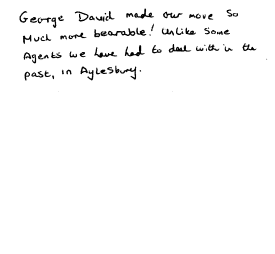 George David made our move so
Much more bearable! Unlike Some
Agents we have had to deal with in the
past, in Aylesbury.